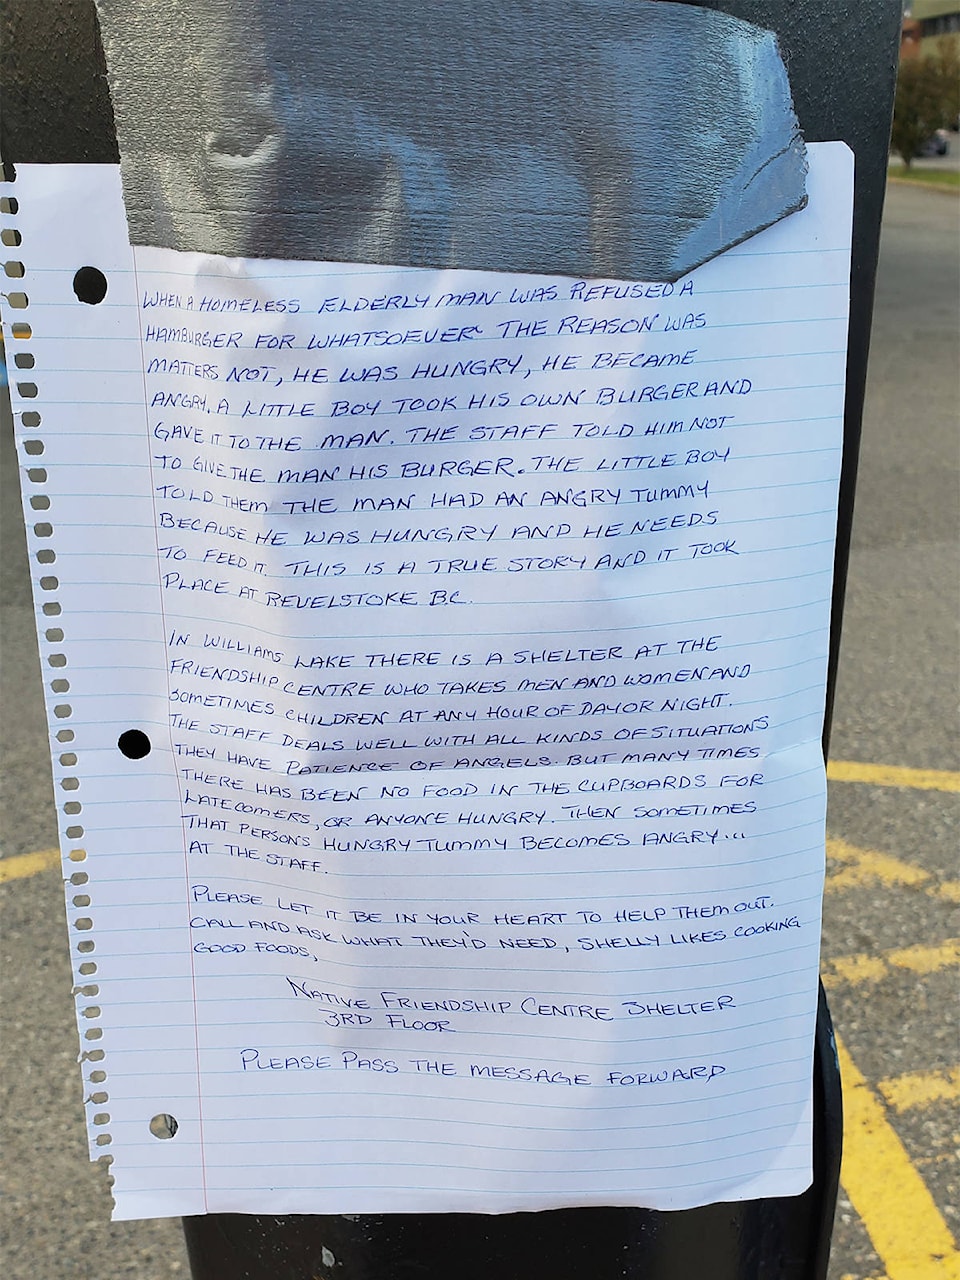 WHEN A HOMELESS ELDERLY MAN WAS REFUSED A
HAMBURGER FOR WHATSOEVER THE REASON WAS
MATTERS NOT, HE WAS HUNGRY, HE BECAME
ANGRY. A LITTLE BOY TOOK HIS OWN BURGER AND
GAVE IT TO THE MAN. THE STAFF TOLD HIM NOT
TO GIVE THE MAN HIS BURGER. THE LITTLE BOY
TOLD THEM THE MAN HAD AN ANGRY TUMMY
BECAUSE HE WAS HUNGRY AND HE NEEDS
TO FEED IT. THIS IS A TRUE STORY AND IT TOOK
PLACE AT REVELSTOKE B.C.
IN WILLIAMS LAKE THERE IS A SHELTER AT THE
FRIENDSHIP CENTRE WHO TAKES MEN AND WOMEN AND
SOMETIMES CHILDREN AT ANY HOUR OF DAY OR NIGHT.
THE STAFF DEALS WELL WITH ALL KINDS OF SITUATIONS
THEY HAVE PATIENCE OF ANGELS. BUT MANY TIMES
THERE HAS BEEN NO FOOD IN THE CUPBOARDS FOR
LATECOMERS, OR ANYONE HUNGRY. THEN SOMETIMES
THAT PERSONS HUNGRY TUMMY BECOMES ANGRY...
AT THE STAFF.
PLEASE LET IT BE IN YOUR HEART TO HELP THEM OUT.
CALL AND ASK WHAT THEY'D NEED, SHELLY LIKES COOKING
GOOD FOODS,
NATIVE FRIENDSHIP CENTRE SHELTER
3RD FLOOR
PLEASE PASS THE MESSAGE FORWARD